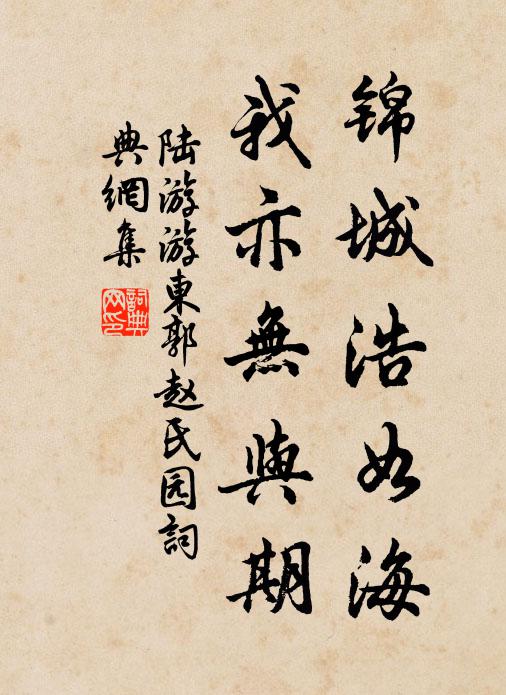 锦城浩如海
我亦無與期
陆游游東郭赵氏园詞
典網集
詞典網印